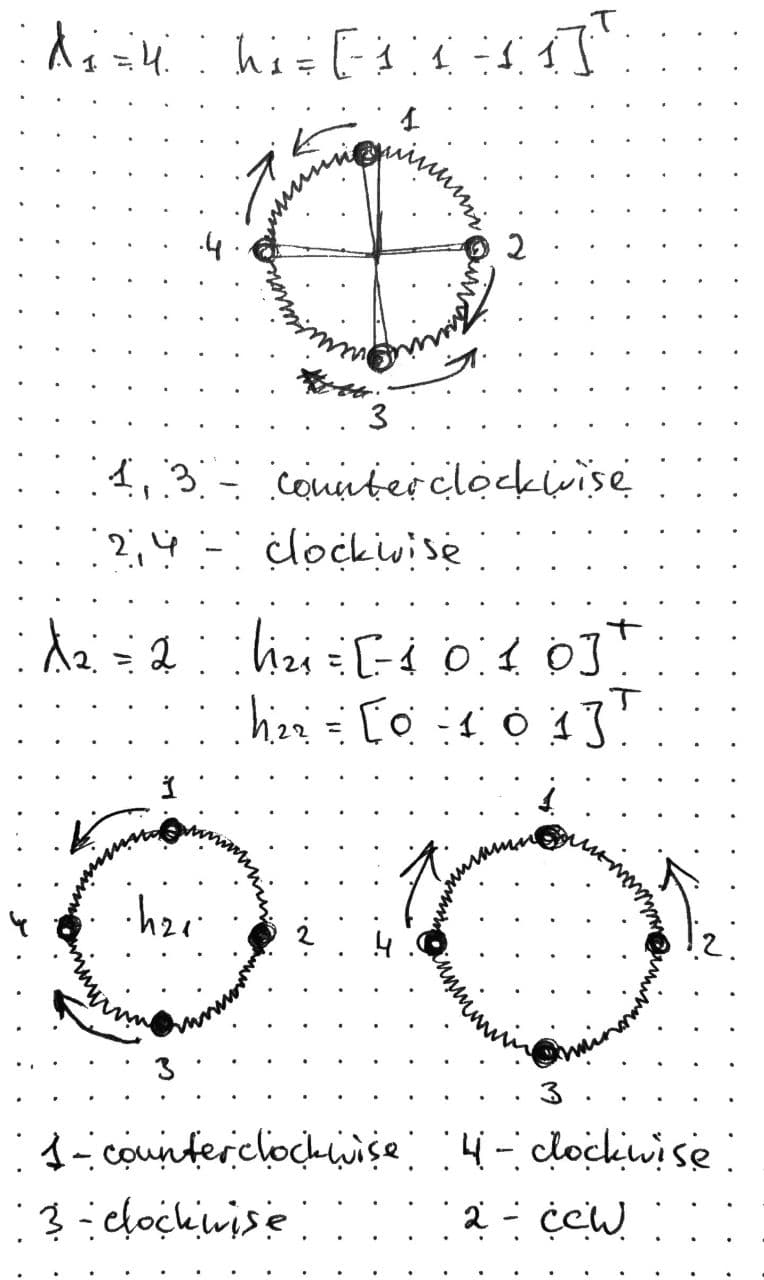 λ₁ = 4 h₁ = [-1 1 -1 1]ᵀ
1
4 2
3
1, 3 - counterclockwise
2, 4 - clockwise
λ₂ = 2 h₂₁ = [-1 0 1 0]ᵀ
h₂₂ = [0 -1 0 1]ᵀ
1 1
4 h₂₁ 2 4 2
3 3
1 - counterclockwise 4 - clockwise
3 - clockwise 2 - CCW